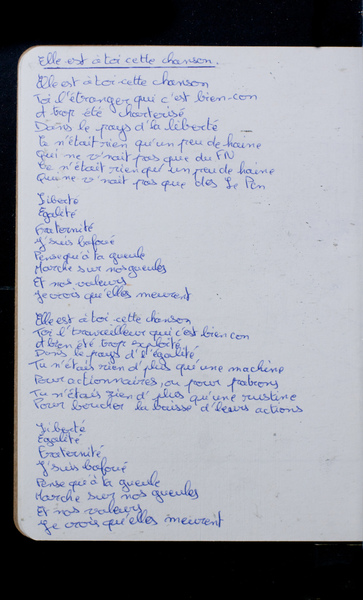 Elle est à toi cette chanson.
Elle est à toi cette chanson
Toi l'étranger qui c'est bien con
d trop été charterisé
Dans le pays d'la liberté
Ce n'était rien qu'un peu de haine
Qui ne v'nait pas que du FN
Ce n'était rien qu'un peu de haine
Qui ne v'nait pas que des Le Pen
Liberté
Egalité
Fraternité
J'suis bafoué
Pense qu'à ta gueule
Marche sur nos gueules
Et nos valeurs
Je crois qu'elles meurent
Elle est à toi cette chanson
Toi l'travailleur qui c'est bien con
d bien été trop exploité
Dans le pays d'l'égalité
Tu n'étais rien d'plus qu'une machine
Pour actionnaires, ou pour patrons
Tu n'étais rien d'plus qu'une rustine
Pour boucher la baisse d'leurs actions
Liberté
Egalité
Fraternité
J'suis bafoué
Pense qu'à ta gueule
Marche sur nos gueules
Et nos valeurs
Je crois qu'elles meurent